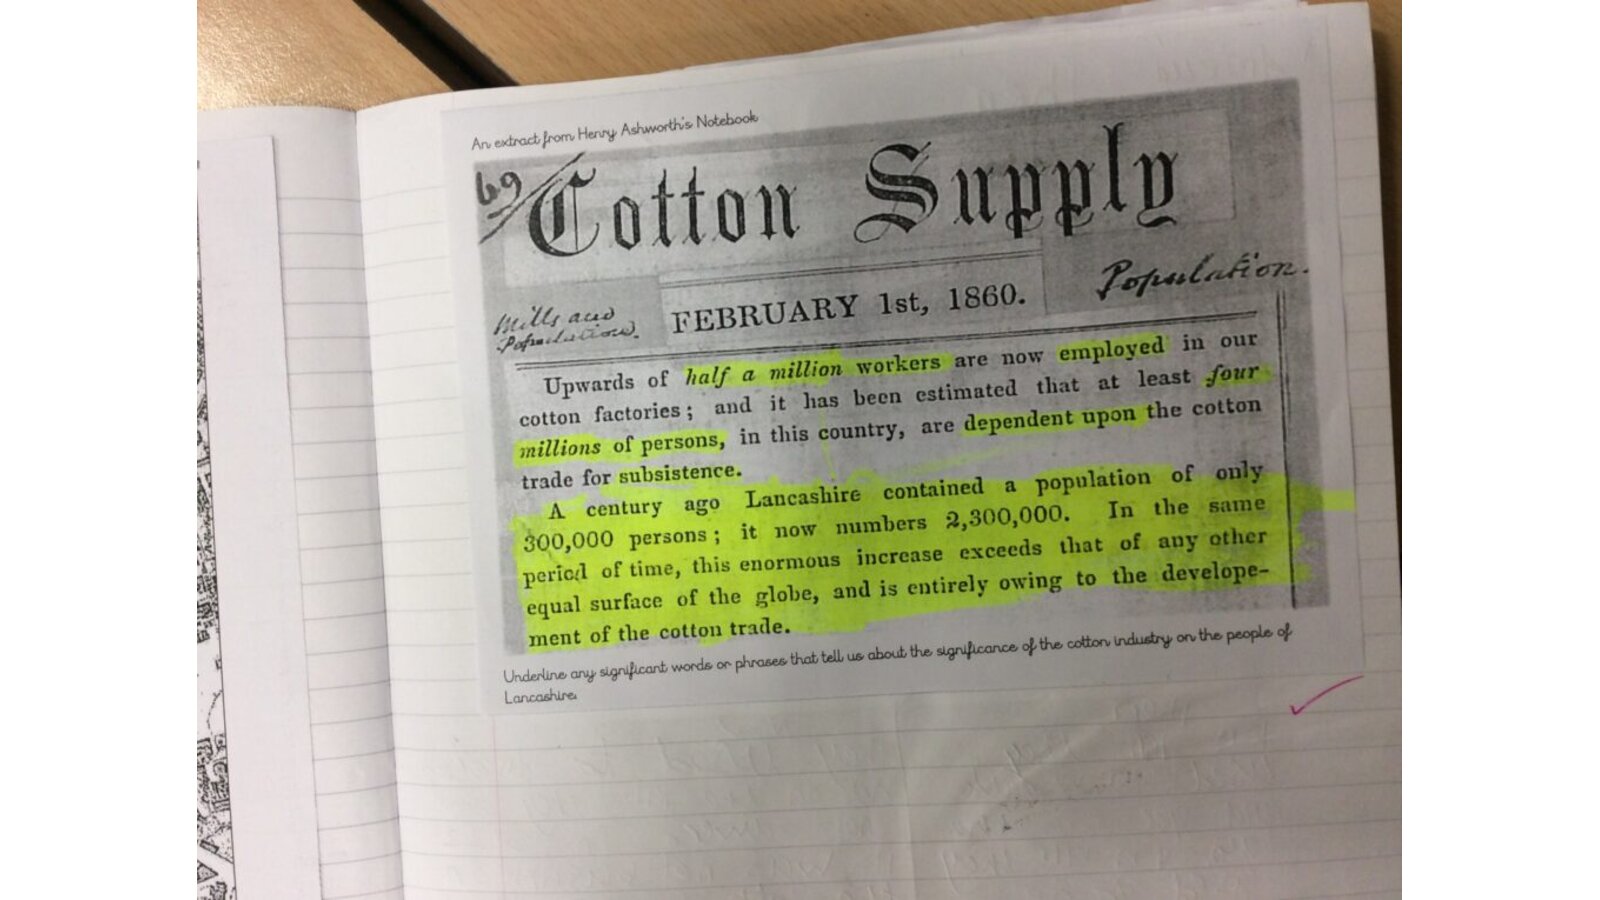 An extract from Henry Ashworth's Notebook
69
Cotton Supply
Mills and
Population.
FEBRUARY 1st, 1860.
Population.
Upwards of half a million workers are now employed in our
cotton factories; and it has been estimated that at least four
millions of persons, in this country, are dependent upon the cotton
trade for subsistence.
A century ago Lancashire contained a population of only
300,000 persons; it now numbers 2,300,000. In the same
period of time, this enormous increase exceeds that of any other
equal surface of the globe, and is entirely owing to the develope-
ment of the cotton trade.
Underline any significant words or phrases that tell us about the significance of the cotton industry on the people of
Lancashire.